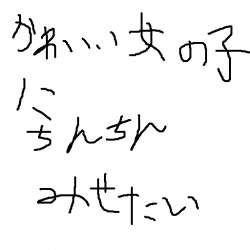 かわいい女の子
に
ちんちん
みせたい